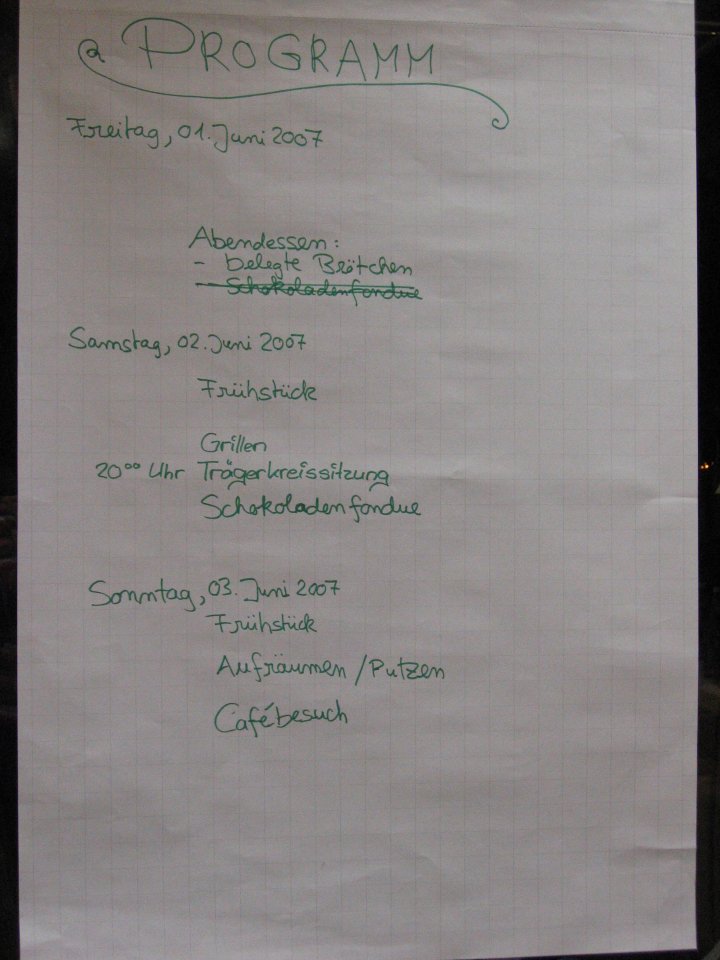 PROGRAMM
Freitag, 01. Juni 2007
Abendessen:
- belegte Brötchen
- Schokoladenfondue
Samstag, 02. Juni 2007
Frühstück
Grillen
20⁰⁰ Uhr Trägerkreissitzung
Schokoladenfondue
Sonntag, 03. Juni 2007
Frühstück
Aufräumen / Putzen
Cafébesuch